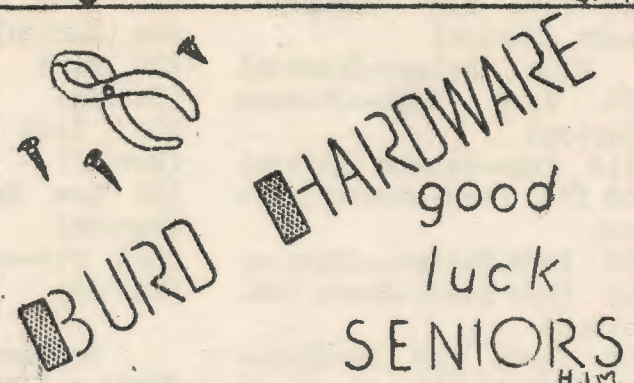 BURD HARDWARE
good
luck
SENIORS
HJM